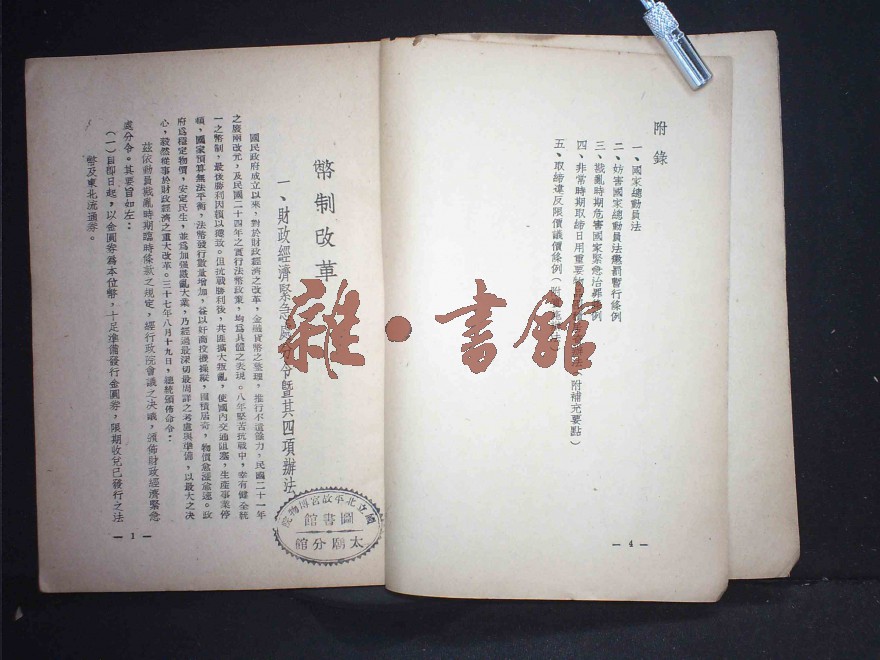 附錄
一、國家總動員法
二、妨害國家總動員法懲罰暫行條例
三、戡亂時期危害國家緊急治罪條例
四、非常時期取締日用重要物品 附補充要點）
五、取締違反限價議價條例（附
— 4 —
幣制改革
一、財政經濟緊急處分令暨其四項辦法
國民政府成立以來，對於財政經濟之改革，金融貨幣之整理，推行不遺餘力，民國二十一年
之廢兩改元，及民國二十四年之實行法幣政策，均為具體之表現。八年堅苦抗戰中，幸有健全統
一之幣制，最後勝利因賴以獲致。但抗戰勝利後，共匪擴大叛亂，使國內交通阻塞，生產事業停
頓，國家預算無法平衡，法幣發行數量增加，益以奸商投機操縱，囤積居奇，物價愈漲愈速。政
府為穩定物價，安定民生，並為加强戡亂大業，乃經過最深切最周詳之考慮與準備，以最大之決
心，毅然從事於財政經濟之重大改革。三十七年八月十九日，總統頒佈命令：
茲依動員戡亂時期臨時條款之規定，經行政院會議之決議，頒佈財政經濟緊急
處分令。其要旨如左：
（一）自即日起，以金圓券為本位幣，十足準備發行金圓券，限期收兌已發行之法
幣及東北流通券。
— 1 —
國立北平故宮博物院
圖書館
太廟分館
雜·書館